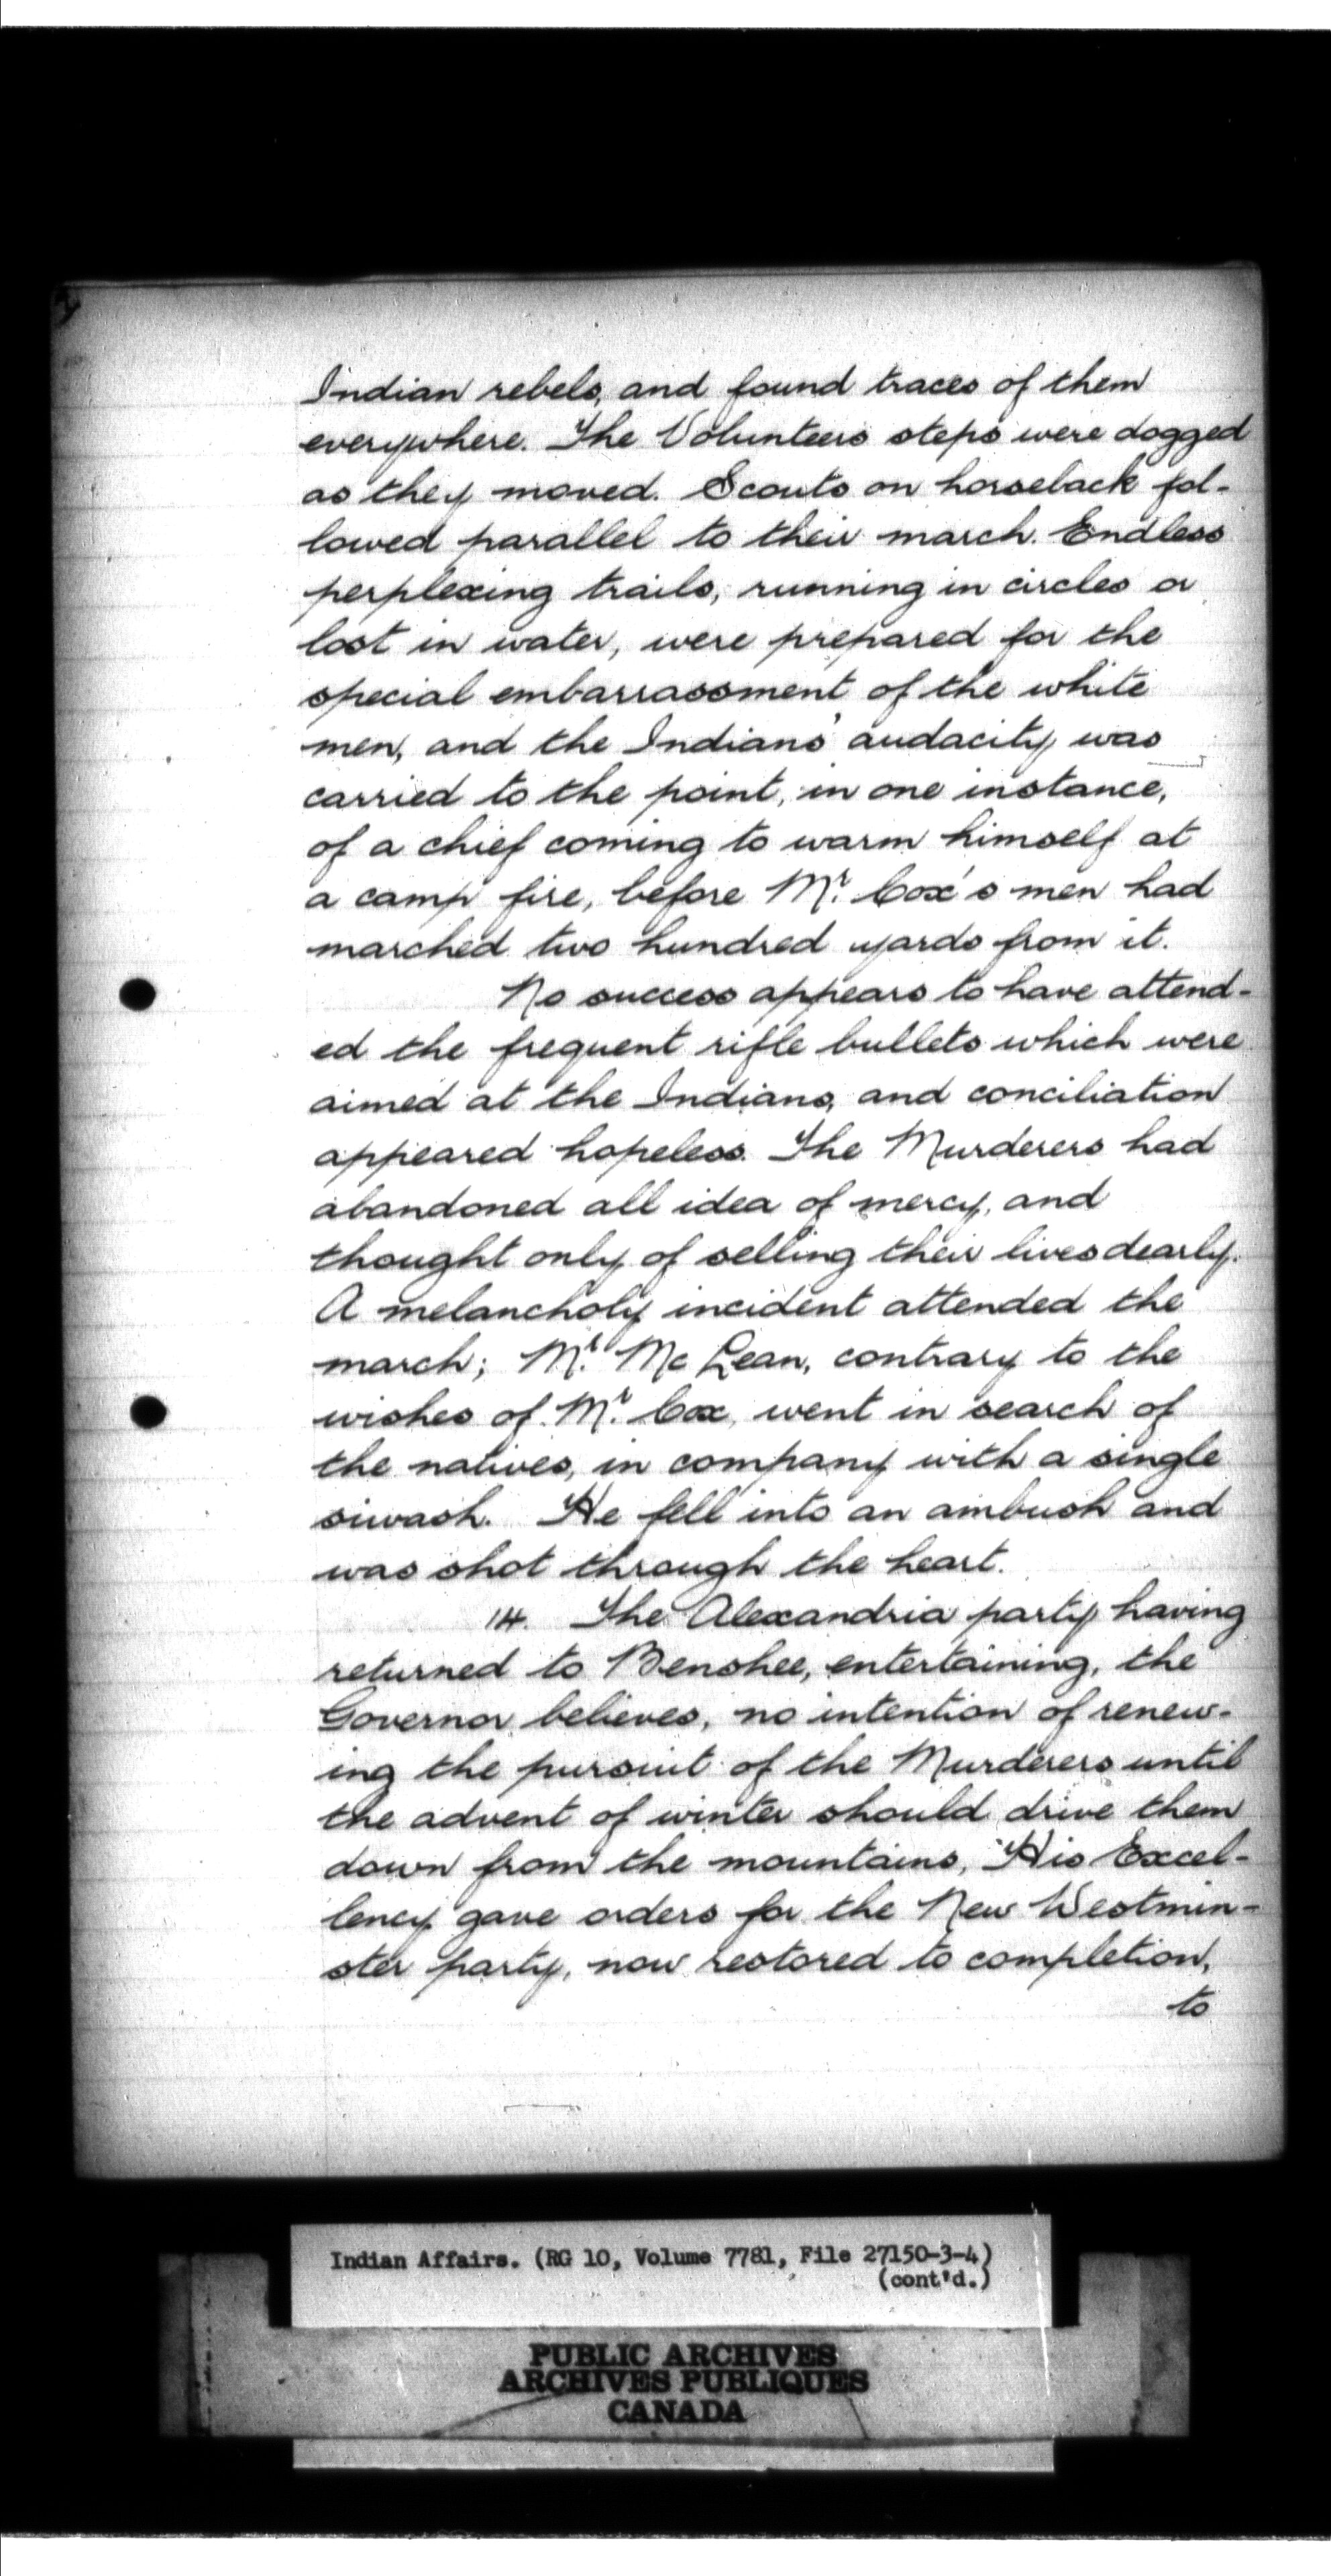 Indian rebels, and found traces of them
everywhere. The Volunteers steps were dogged
as they moved. Scouts on horseback fol-
lowed parallel to their march. Endless
perplexing trails, running in circles or
lost in water, were prepared for the
special embarrassment of the white
men, and the Indians' audacity was
carried to the point, in one instance,
of a chief coming to warm himself at
a camp fire, before Mr. Cox's men had
marched two hundred yards from it.
No success appears to have attend-
ed the frequent rifle bullets which were
aimed at the Indians, and conciliation
appeared hopeless. The Murderers had
abandoned all idea of mercy, and
thought only of selling their lives dearly.
A melancholy incident attended the
march; Mr. McLean, contrary to the
wishes of Mr. Cox, went in search of
the natives, in company with a single
siwash. He fell into an ambush and
was shot through the heart.
14. The Alexandria party having
returned to Benshee, entertaining, the
Governor believes, no intention of renew-
ing the pursuit of the Murderers until
the advent of winter should drive them
down from the mountains, His Excel-
lency gave orders for the New Westmin-
ster party, now restored to completion,
to
Indian Affairs. (RG 10, Volume 7781, File 27150-3-4)
(cont'd.)
PUBLIC ARCHIVES
ARCHIVES PUBLIQUES
CANADA